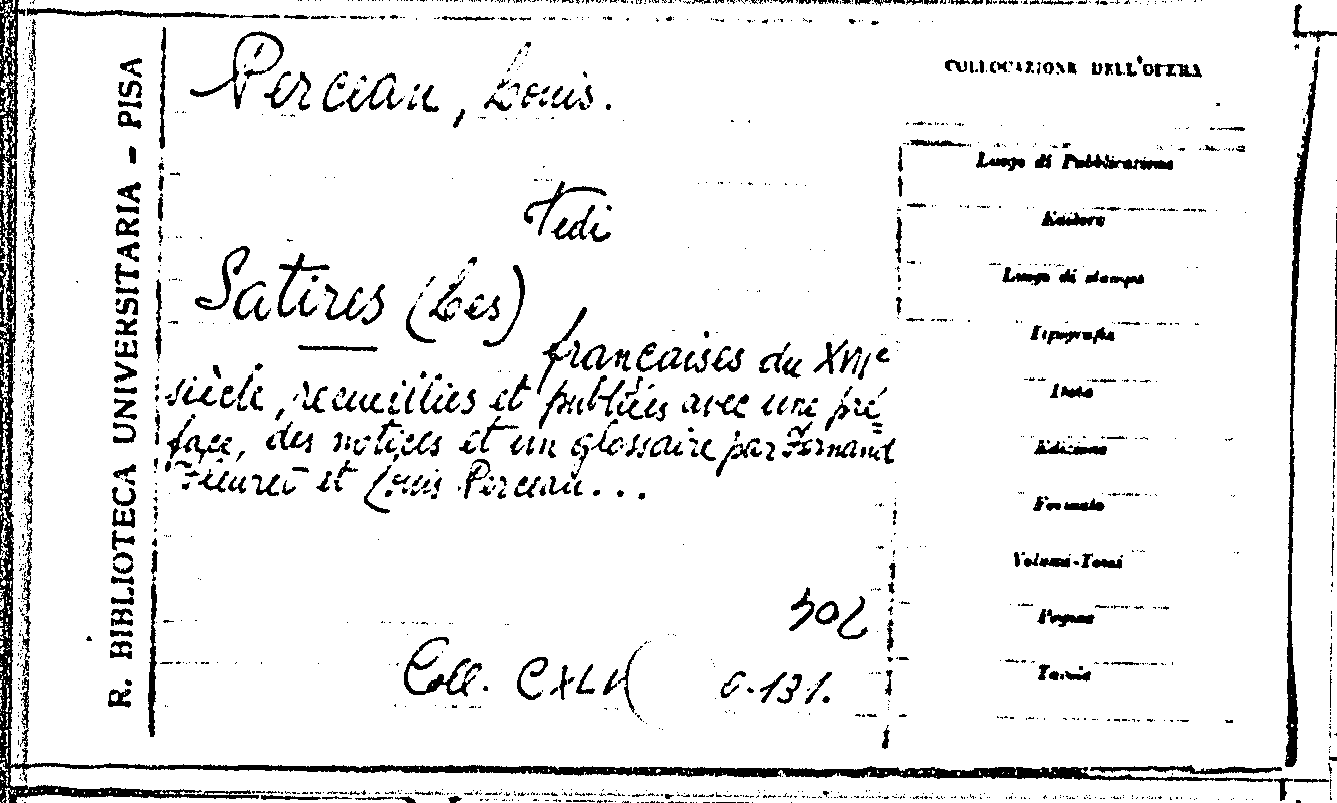 R. BIBLIOTECA UNIVERSITARIA - PISA
Perceau, Louis.
Vedi
Satires (Les)
françaises du XVIIe
siècle, recueillies et publiées avec une pré=
face, des notices et un glossaire par Fernand
Fleuret et Louis Perceau...
502
Coll. 6.131.
COLLOCAZIONE DELL'OPERA
Luogo di Pubblicazione
Editore
Luogo di stampa
Tipografia
Data
Edizione
Formato
Volumi-Tomi
Pagine
Tavole